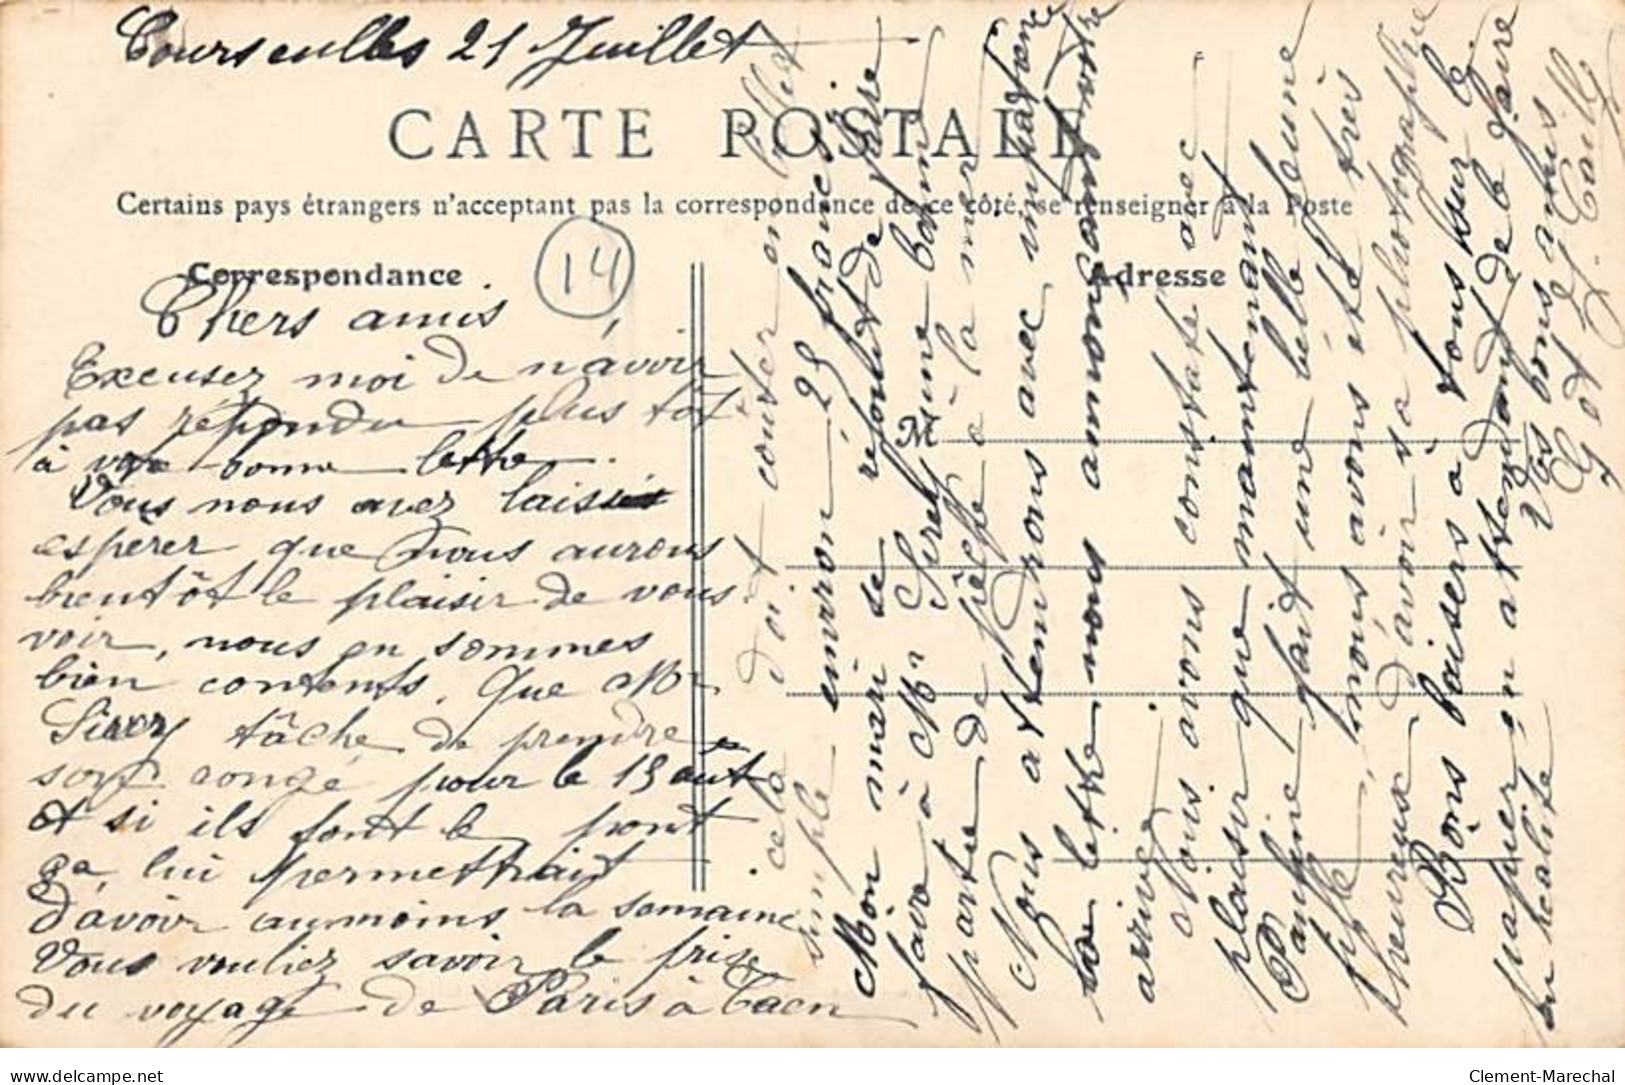 Courseulles 21 Juillet
CARTE POSTALE
Certains pays étrangers n'acceptant pas la correspondance de ce côté, se renseigner à la Poste
Correspondance
14
Adresse
M
Chers amis
Excusez moi de n'avoir
pas répondu plus tôt
à votre bonne lettre.
Vous nous avez laissé
espérer que nous aurons
bientôt le plaisir de vous
voir, nous en sommes
bien contents. Que Mr
Sirey tâche de prendre
son congé pour le 15 août
et si ils font le pont
ça lui permettrait
d'avoir au moins la semaine
Vous vouliez savoir le prix
du voyage de Paris à Caen
cela doit coûter en billet
simple environ 25 francs
Mon mari se réjouit de faire
faire à Mr Sirey une bonne
partie de pêche à la mer
Nous attendrons avec impatience
la lettre nous annonçant votre
arrivée
Nous avons constaté avec
plaisir que maintenant
Pauline fait une belle jeune
fille, nous avons été très
heureux d'avoir sa photographie
Bons baisers à tous sur le
papier en attendant de le faire
en réalité
Vos bons amis
E et J. Cailly
Clement-Marechal